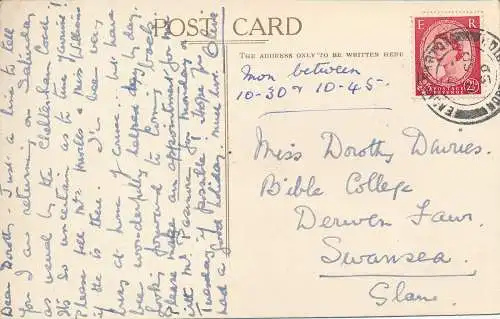 POST CARD
THE ADDRESS ONLY TO BE WRITTEN HERE
E R
POSTAGE REVENUE
2½D
Mon between
10-30 & 10-45.
Miss Dorothy Davies.
Bible College
Derwen Fawr.
Swansea.
Glam.
Dear Dorothy. Just a line to tell
you I am returning on Saturday
as usual by the Cheltenham Coach!
It's so uncertain as to time I arrive!
Please tell Mrs & Miss Williams
if she is there. I've been very
busy at home of course but have
been wonderfully helped day by day.
Looking forward to coming back.
Please make an appointment for me
with Mr Passmore for Monday or
Tuesday if Possible! Hope you
had a good holiday. much love. Olive